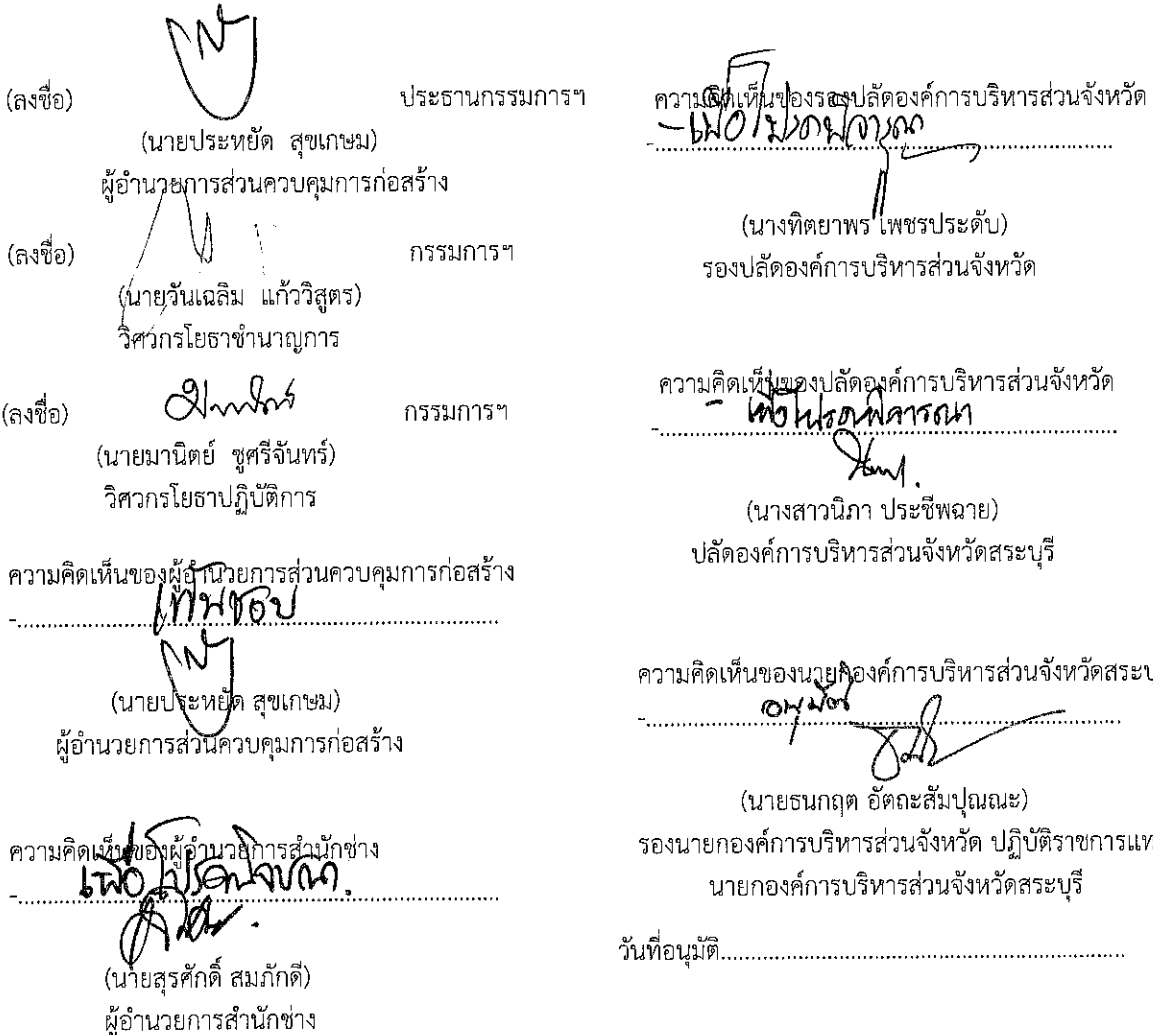 (ลงชื่อ) ประธานกรรมการฯ
(นายประหยัด สุขเกษม)
ผู้อำนวยการส่วนควบคุมการก่อสร้าง
(ลงชื่อ) กรรมการฯ
(นายวันเฉลิม แก้ววิสูตร)
วิศวกรโยธาชำนาญการ
(ลงชื่อ) กรรมการฯ
(นายมานิตย์ ชูศรีจันทร์)
วิศวกรโยธาปฏิบัติการ
ความคิดเห็นของผู้อำนวยการส่วนควบคุมการก่อสร้าง
- เห็นชอบ
(นายประหยัด สุขเกษม)
ผู้อำนวยการส่วนควบคุมการก่อสร้าง
ความคิดเห็นของผู้อำนวยการสำนักช่าง
- เพื่อโปรดพิจารณา
(นายสุรศักดิ์ สมภักดี)
ผู้อำนวยการสำนักช่าง
ความคิดเห็นของรองปลัดองค์การบริหารส่วนจังหวัด
- เพื่อโปรดพิจารณา
(นางทิตยาพร เพชรประดับ)
รองปลัดองค์การบริหารส่วนจังหวัด
ความคิดเห็นของปลัดองค์การบริหารส่วนจังหวัด
- เพื่อโปรดพิจารณา
(นางสาวนิภา ประชีพฉาย)
ปลัดองค์การบริหารส่วนจังหวัดสระบุรี
ความคิดเห็นของนายกองค์การบริหารส่วนจังหวัดสระบ
- อนุมัติ
(นายธนกฤต อัตถะสัมปุณณะ)
รองนายกองค์การบริหารส่วนจังหวัด ปฏิบัติราชการแท
นายกองค์การบริหารส่วนจังหวัดสระบุรี
วันที่อนุมัติ